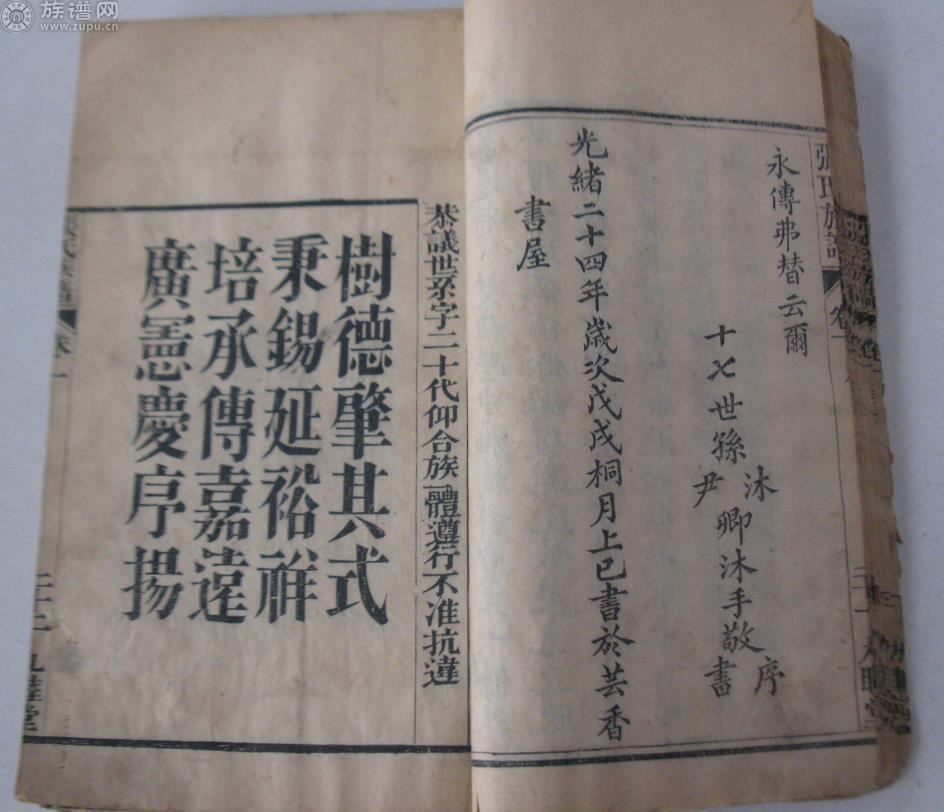 族谱网
www.zupu.cn
永傳弗替云爾
十七世孫沐卿沐手敬序
尹書
光緒二十四年歲次戊戌桐月上巳書於芸香
書屋
張氏族譜
卷一
恭議世系字二十代仰合族一體遵行不准抗違
樹德肇其式
秉錫延裕祥
培承傳嘉遠
廣憲慶序揚
卷一
二十二